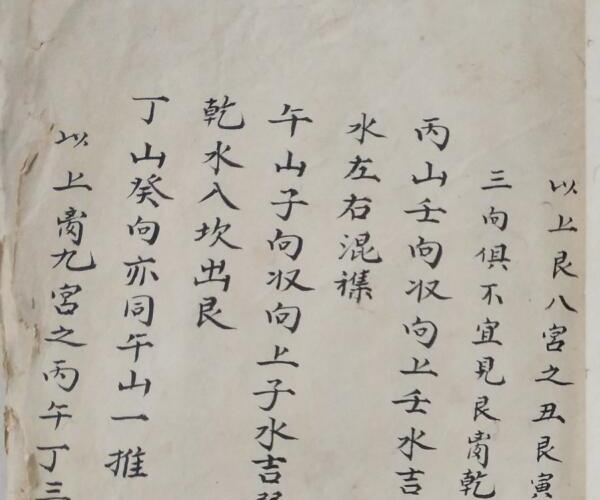 以上艮八宮之丑艮寅
三向俱不宜見艮离乾
丙山壬向収向上壬水吉
水左右混襍
午山子向収向上子水吉
乾水入坎出艮
丁山癸向亦同午山一推
以上离九宮之丙午丁三